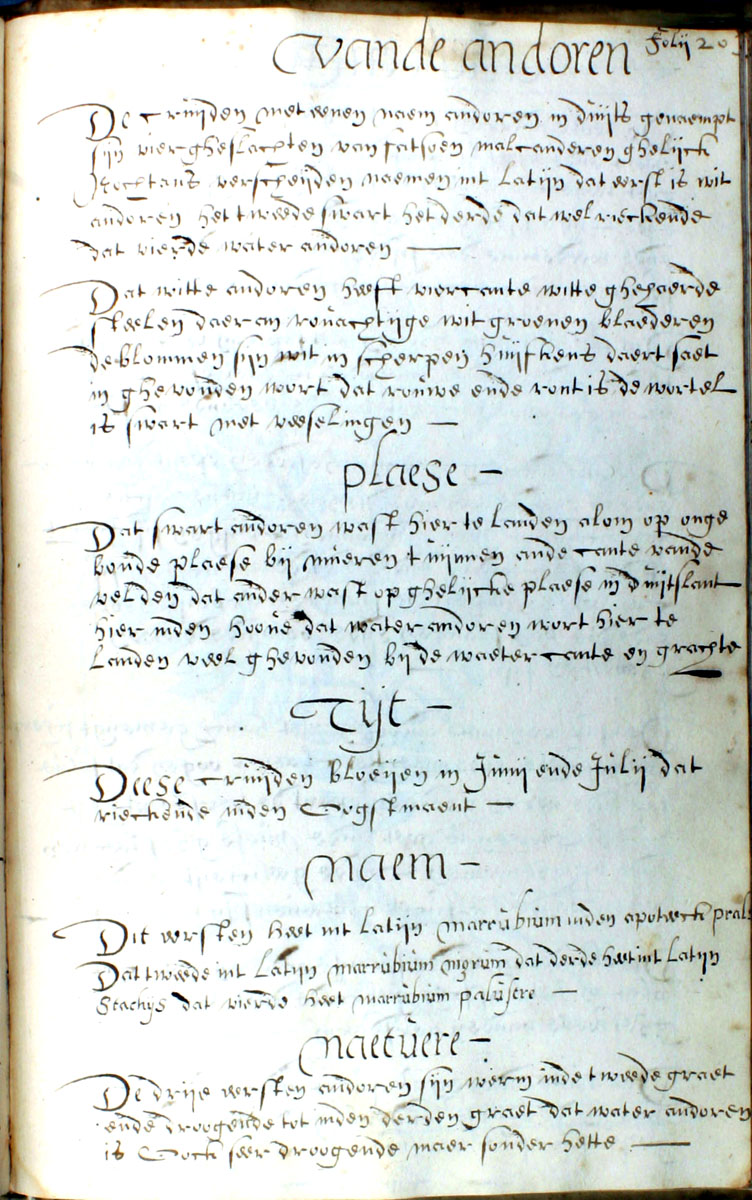 vande andoren
Folii 20
De cruijden met eenen naem andoren in duijts genaempt
sijn vier gheslachten van fatsoen malcanderen ghelijck
Nochtans verscheijden naemen int Latijn dat eerst is wit
andoren het tweede swart het derde dat wel rieckende
dat vierde water andoren —
Dat witte andoren heeft viercante witte ghehaerde
steelen daer aen rouachtijge wit groenen blaederen
de blommen sijn wit in scherpen huijskens daert saet
in ghevonden wort dat rouwe ende ront is de wortel
is swart met veeselingen —
plaese —
Dat swart andoren wast hier te landen alom op onge
boude plaese bij mueren tuijnnen ande cante vande
velden dat ander wast op ghelijcke plaese in duijtslant
hier inden hoove dat water andoren wort hier te
Landen veel ghevonden bij de waeter cante en grachte
Tijt —
Deese cruijden bloeijen in Junij ende Julij dat
rieckende inden Oogstmaent —
Naem —
Dit eersten heet int Latijn marrubium inden apoteeck
Dat tweede int Latijn marrubium nigrum dat derde heet int Latijn
Stachys dat vierde heet marrubium
Naetuere —
De drije eersten andoren sijn werm inde tweede graet
ende droogende tot inden derden graet dat water andoren
is oock seer droogende maer sonder hette —